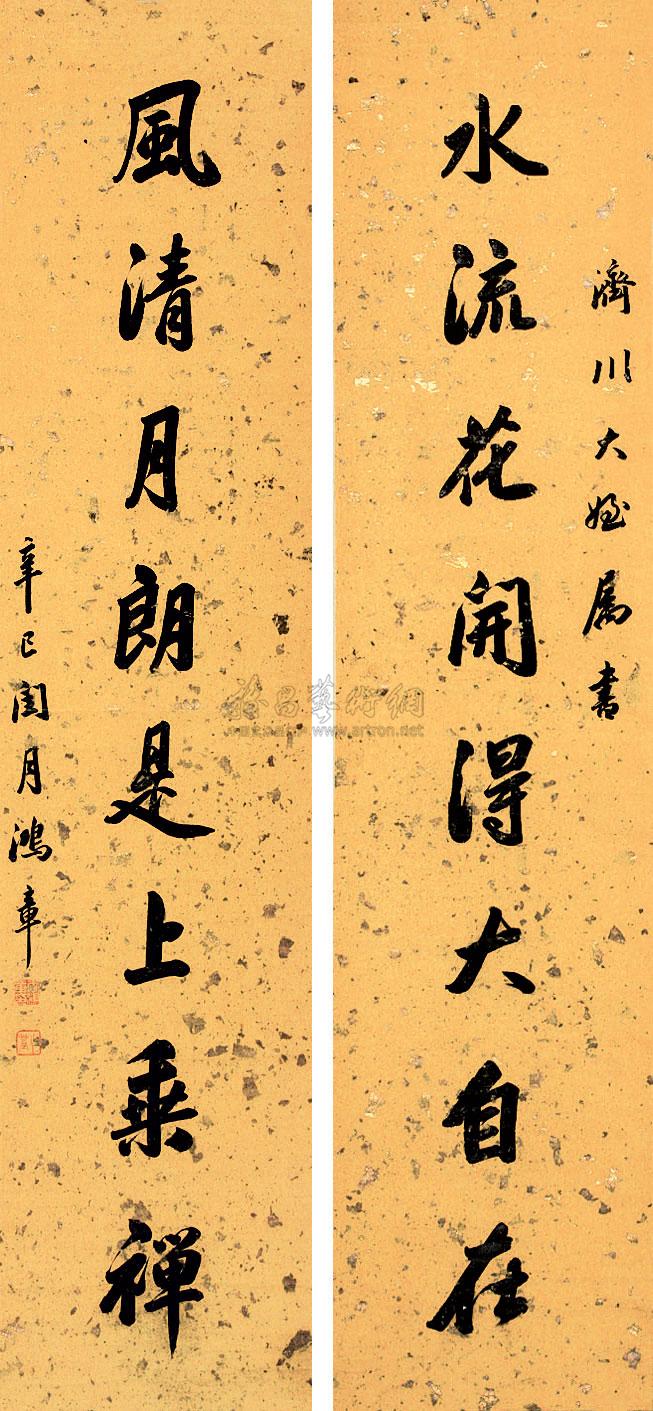 濟川大姪属書
水流花開得大自在
風清月朗是上乘禪
辛巳閏月鴻章
www.artron.net